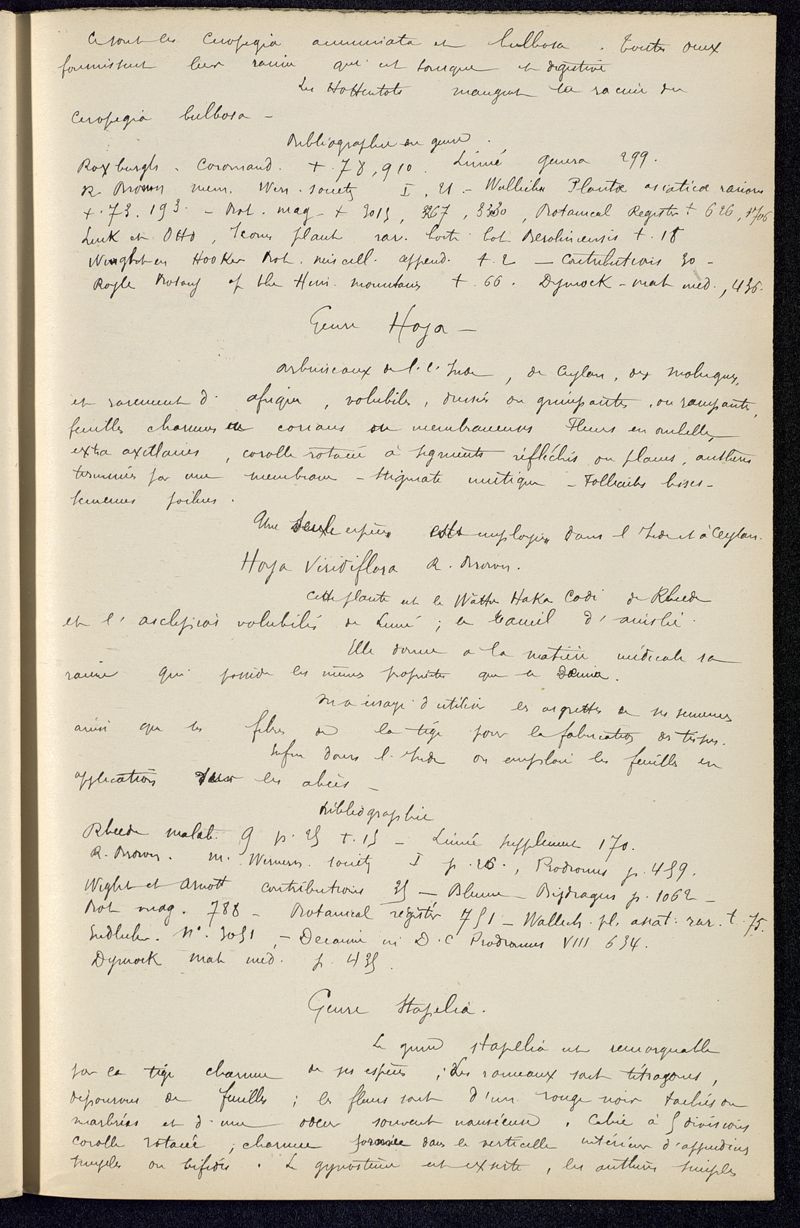 Ce sont les Ceropegia acuminata et bulbosa. Toutes deux
fournissent leur racine qui est tonique et digestive
Les Hottentots mangent la racine du
Ceropegia bulbosa -
Bibliographie du genre.
Roxburgh. Coromand. t. 78, 910. Linné genera 299.
R. Brown mem. Wern. society I, 21 - Wallich Plantæ asiaticæ rariores
t. 73. 193. - Bot. mag. t 3015, 3267, 3330, Botanical Register t 626, 1706
Link et Otto, Icones plant rar. horti bot Berolinensis t. 18
Wight in Hooker Bot. miscell. append. t. 2 - Contributions 30 -
Royle Botany of the Him. mountains t. 66. Dymock - mat med., 436.
Genre Hoya -
Arbrisseaux de l'Inde, de Ceylan, des Moluques,
et rarement d'afrique, volubiles, dressés ou grimpants, ou rampants,
feuilles charnues coriaces ou membraneuses Fleurs en ombelle,
extra axillaires, corolle rotacée à segments réfléchis, ou planes, anthères
terminées par une membrane - Stigmate mutique - Follicules lisses -
semences poilues.
Une seule espèce est employée dans l'Inde et à Ceylan.
Hoya Viridiflora R. Brown.
Cette plante est le Watta Kaka Codi de Rheede
et l'asclepias volubilis de Linné; d'ainslie.
Elle donne a la matière médicale sa
racine qui possède les mêmes propriétés que le Dæmia.
On a usage d'utiliser les aigrettes de ses semences
ainsi que les fibres de la tige pour la fabrication des tissus.
Enfin dans l'Inde on emploie les feuilles en
applications sur les abcès -
Bibliographie
Rheede malab. 9 p. 25 t. 15 - Linné supplement 170.
R. Brown. m. Werner. society I p. 26., Prodromus p. 459.
Wight et Arnott contributions 39 - Blume - Bijdragen p. 1062 -
Bot mag. 788 - Botanical register 951 - Wallich. pl. asiat. rar. t. 75.
Endlicher. N°. 3051, - Decaisne in D.C Prodromus VIII 634.
Dymock mat med. p. 435
Genre Stapelia.
Le genre stapelia est remarquable
par la tige charnue de ses espèces; Les rameaux sont tétragones,
dépourvus de feuilles; les fleurs sont d'un rouge noir tachées ou
marbrées et d'une odeur souvent nauséeuse. Calice à 5 divisions
corolle rotacée, charnue formée dans le verticelle intérieur d'appendices
simples ou bifides. Le gynostème est exserte, les anthères simples